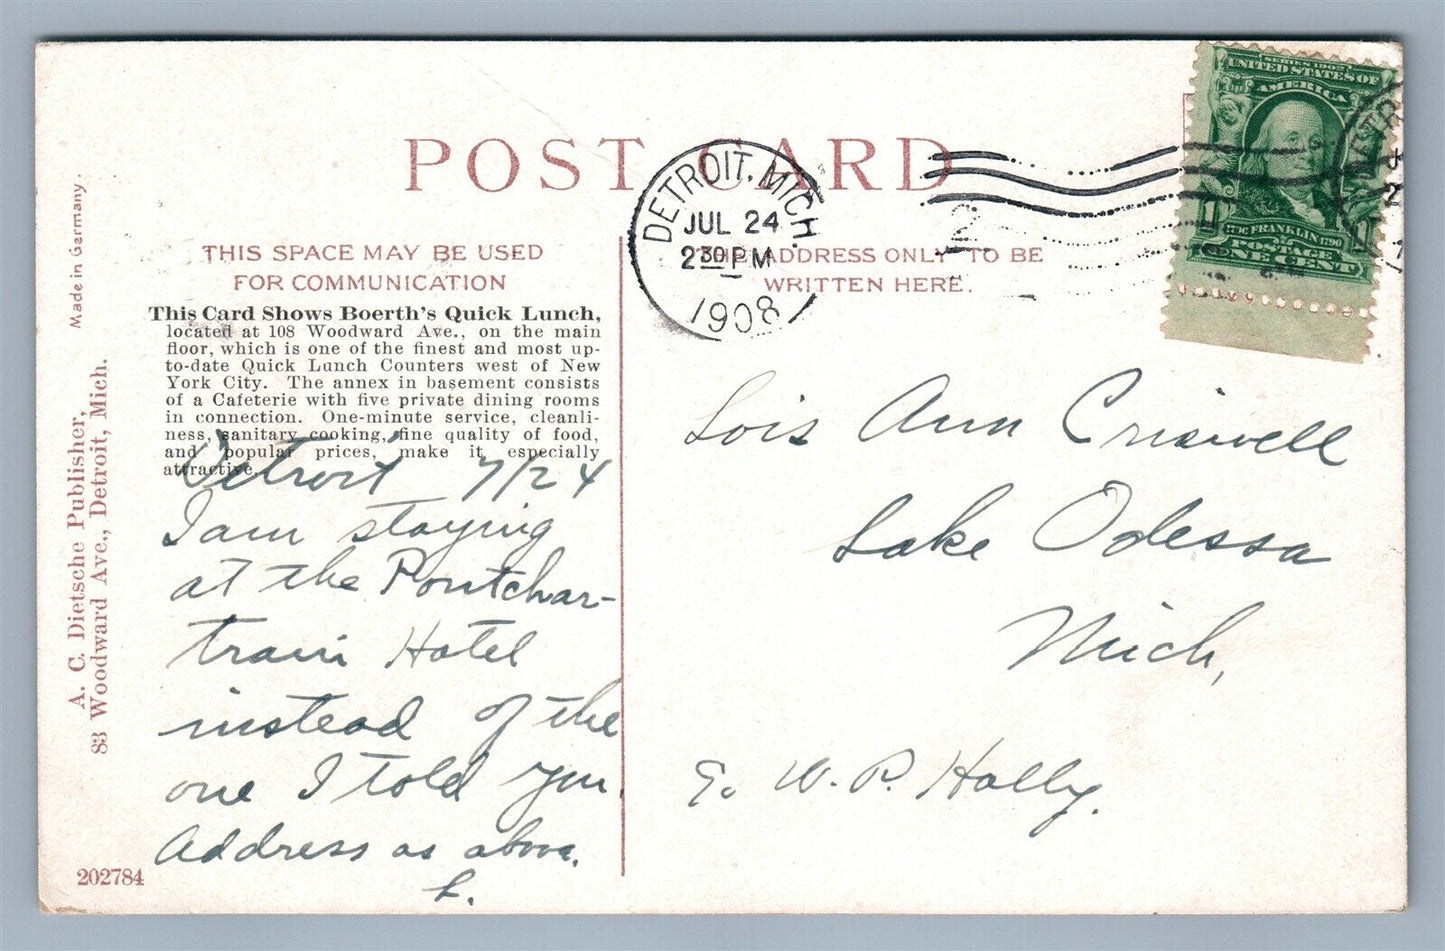 POST CARD
DETROIT, MICH.
JUL 24
2 30 PM
1908
SERIES 1902
UNITED STATES OF
AMERICA
FRANKLIN 1790
POSTAGE
ONE CENT
THIS SPACE MAY BE USED
FOR COMMUNICATION
THE ADDRESS ONLY TO BE
WRITTEN HERE.
This Card Shows Boerth's Quick Lunch,
located at 108 Woodward Ave., on the main
floor, which is one of the finest and most up-
to-date Quick Lunch Counters west of New
York City. The annex in basement consists
of a Cafeterie with five private dining rooms
in connection. One-minute service, cleanli-
ness, sanitary cooking, fine quality of food,
and popular prices, make it especially
attractive.
Detroit 7/24
I am staying
at the Pontchar-
train Hotel
instead of the
one I told you.
Address as above.
L.
Lois Ann Criswell
Lake Odessa
Mich,
W. P. Holly.
Made in Germany.
A. C. Dietsche Publisher,
83 Woodward Ave., Detroit, Mich.
202784